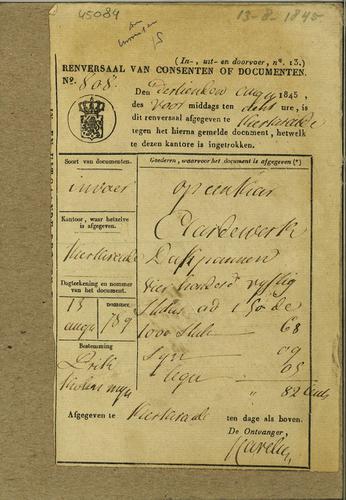 45084
13-8-1845
(In-, uit- en doorvoer, n°. 13.)
RENVERSAAL VAN CONSENTEN OF DOCUMENTEN.
N°. 808.
Den Dertienden Augu 1845,
des voor middags ten ure, is
dit renversaal afgegeven te Kerkrade
tegen het hierna gemelde document, hetwelk
te dezen kantore is ingetrokken.
Soort van documenten.
Goederen, waarvoor het document is afgegeven (*)
invoer
op een kar
Kantoor, waar hetzelve is afgegeven.
Aardewerk
Kerkrade
Dakpannen
Dagteekening en nommer van het document.
vier honderd vyftig
13 nommer.
Stuks ad 1.50 de
augu 789
1000 Stuks 68
Bestemming
09
05
" 82 Cents
Afgegeven te Kerkrade ten dage als boven.
De Ontvanger,